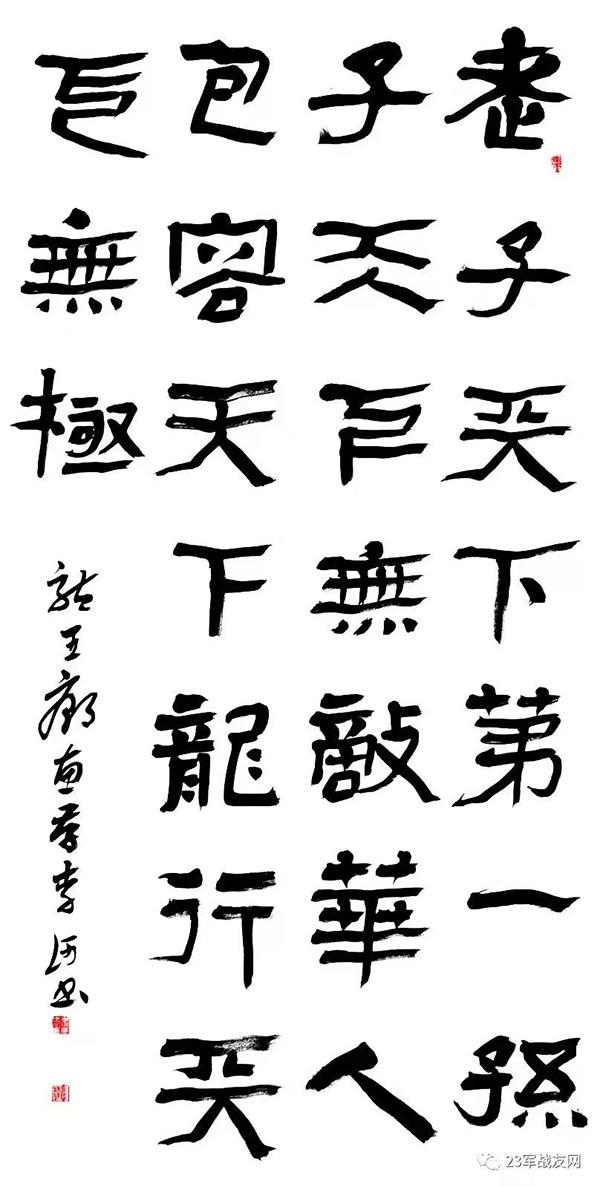 老子天下第一孫
子天下無敵華人
包容天下龍行天
下無極
王廟 李河书
23军战友网